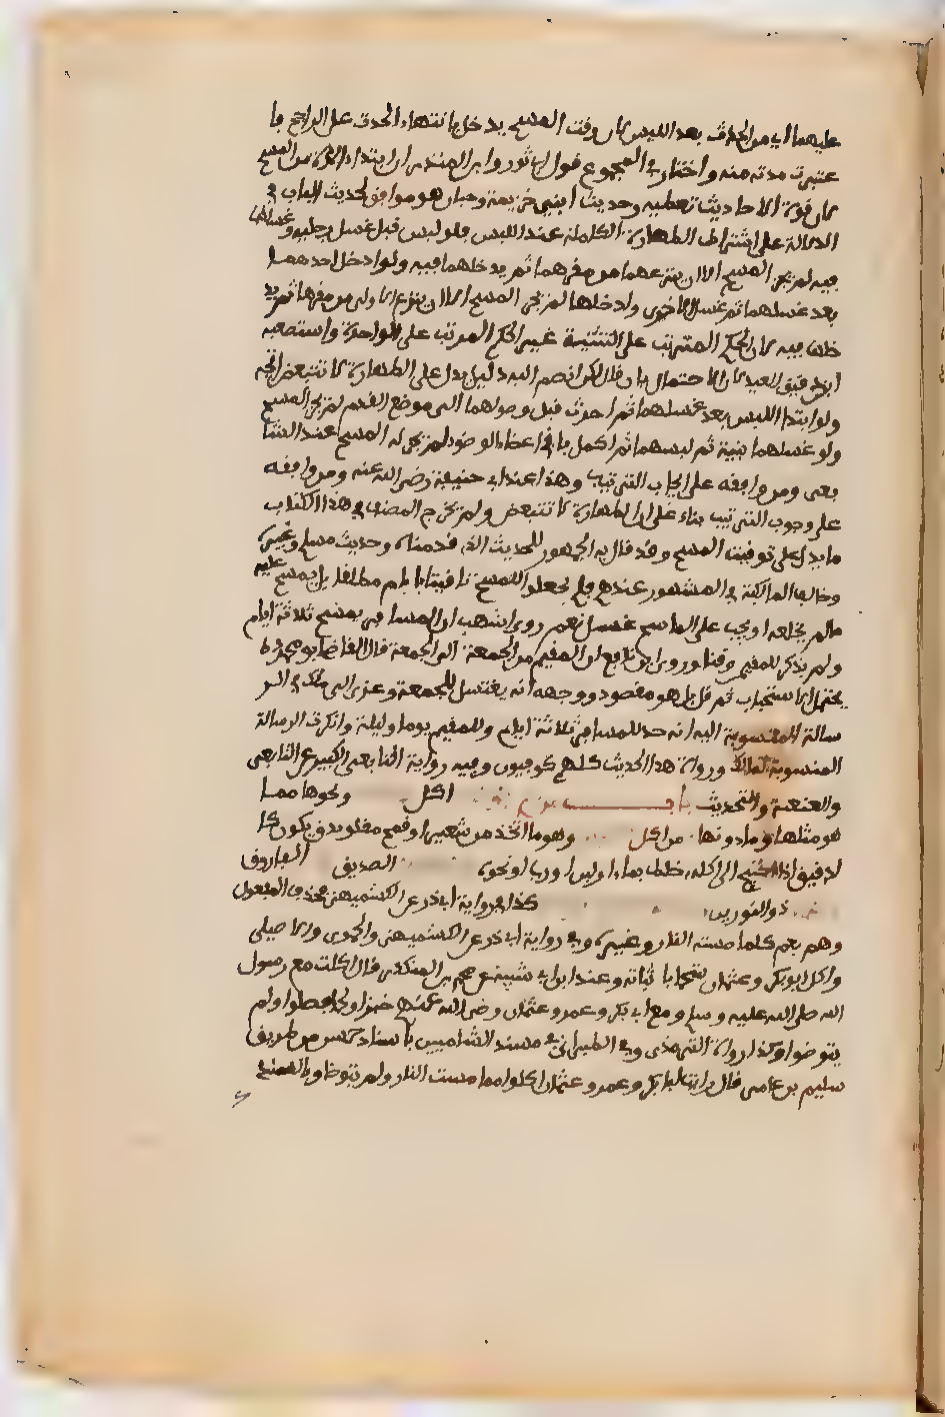 عليهما اي من الحدث بعد اللبس لان وقت المسح يدخل بانتهاء الحدث على الراجح فا
عتبرت مدته منه واختار في المجموع قول ابي ثور وابن المنذر ان ابتداء المدة من المسح
لان قوة الاحاديث تعطيه وحديث ابني خزيمة وحبان هو موافق لحديث الباب في
الدلالة على اشتراط الطهارة الكاملة عند اللبس فلو لبس قبل غسل رجليه وغسلهما
فيه لم يجز المسح الا ان ينزعهما من مقرهما ثم يدخلهما فيه ولو ادخل احدهما
بعد غسلهما ثم غسل الاخرى وادخلها لم يجز المسح الا ان ينزع الاولى من مقرها ثم يد
خلها فيه لان الحكم المترتب على التثنية غير الحكم المرتب على الواحدة واستضعفه
ابن دقيق العيد لان الاحتمال باق قال لكن ان ضم اليه دليل يدل على الطهارة لا تتبعض اتجه
ولو ابتدا اللبس بعد غسلهما ثم احدث قبل وصولهما الى موضع القدم لم يجز المسح
ولو غسلهما بنية ثم لبسهما ثم اكمل باقي اعضاء الوضوء لم يجز له المسح عند الشا
فعي ومن وافقه على ايجاب الترتيب وهذا عند ابي حنيفة رضي الله عنه ومن وافقه
على وجوب الترتيب بناء على ان الطهارة لا تتبعض ولم يخرج المصنف في هذا الكتاب
ما يدل على توقيت المسح وقد قال به الجمهور للحديث الذي قدمناه وحديث مسلم وغيره
وخالف المالكية في المشهور عندهم فلم يجعلوا للمسح تاقيتا بايام مطلقا بل يمسح عليه
مالم يخلعه او يجب على الماسح غسل نعم روى اشهب ان المسافر يمسح ثلاثة ايام
ولم يذكر للمقيم وقتا وروى ابن نافع ان المقيم من الجمعة الى الجمعة قال القاضي ابو محمد هذا
يحتمل الاستحباب ثم قال بل هو مقصود ووجهه انه يغتسل للجمعة وعزى الى ملك في الر
سالة المنسوبة اليه انه حد للمسافر ثلاثة ايام وللمقيم يوما وليلة وانكرت الرسالة
المنسوبة لمالك ورواة هذا الحديث كلهم كوفيون وفيه رواية التابعي الكبير عن التابعي
والعنعنة والتحديث باب من اكل ونحوها مما
هو مثلها وما دونها من اكل وهو ما اتخذ من شعير او قمح مقلو يدق يكون كا
لدقيق اذا احتيج الى اكله خلط بماء او لبن او رب او نحوه الصديق الفاروق
ذو النورين كذا في رواية ابي ذر عن الكشميهني بحذف المفعول
وهم يعم كلما مسته النار وغيره وفي رواية ابي ذر عن الكشميهني والحموي والاصيلي
واكل ابو بكر وعثمان لحما باثباته وعند ابن ابي شيبة عن محمد بن المنكدر قال اكلت مع رسول
الله صلى الله عليه وسلم ومع ابي بكر وعمر وعثمان رضي الله عنهم خبزا ولحما فصلوا ولم
يتوضوا وكذا رواه الترمذي وفي الطبراني في مسند الشاميين باسناد حسن من طريق
سليم بن عامر قال رايت ابا بكر وعمر وعثمان اكلوا مما مست النار ولم يتوضاوا